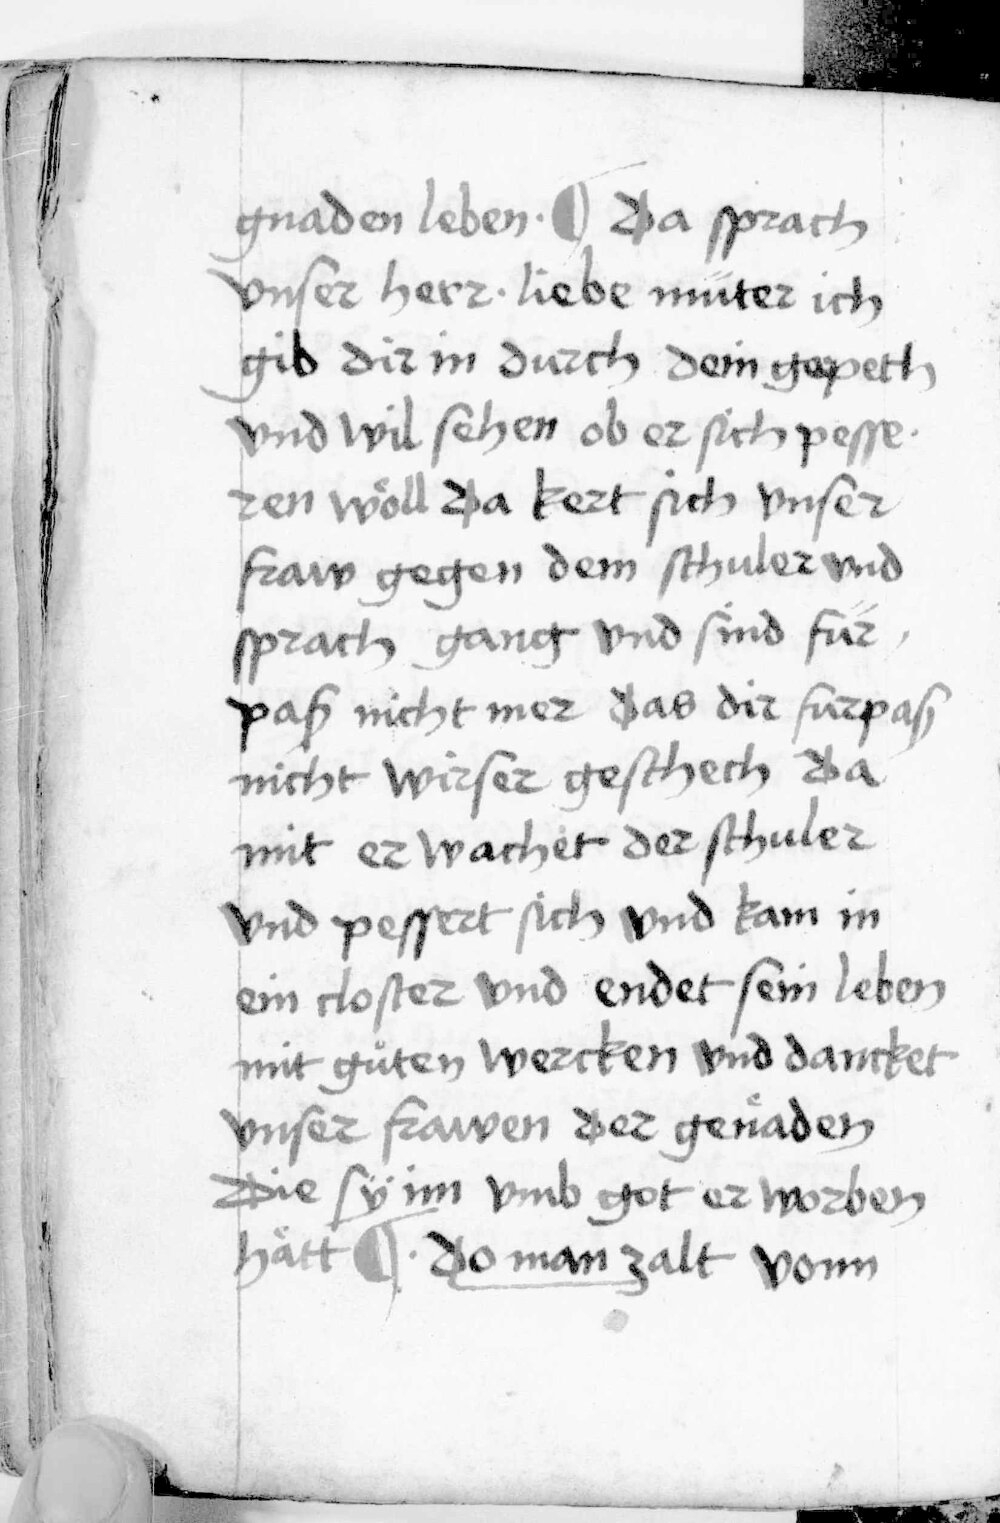 gnaden leben · ¶ Da sprach
vnser herr · liebe müter ich
gib dir in durch dein gepeth
vnd wil sehen ob er sich pesse·
ren wöll Da kert sich vnser
fraw gegen dem schuler vnd
sprach gang vnd sünd für
paß nicht mer das dir fürpaß
nicht wirser geschech Da
mit er wachet der schuler
vnd pessert sich vnd kam in
ein closter vnd endet sein leben
mit güten wercken vnd dancket
vnser frawen der genaden
Die sÿ im vmb got er worben
hätt ¶ · Do man zalt vonn